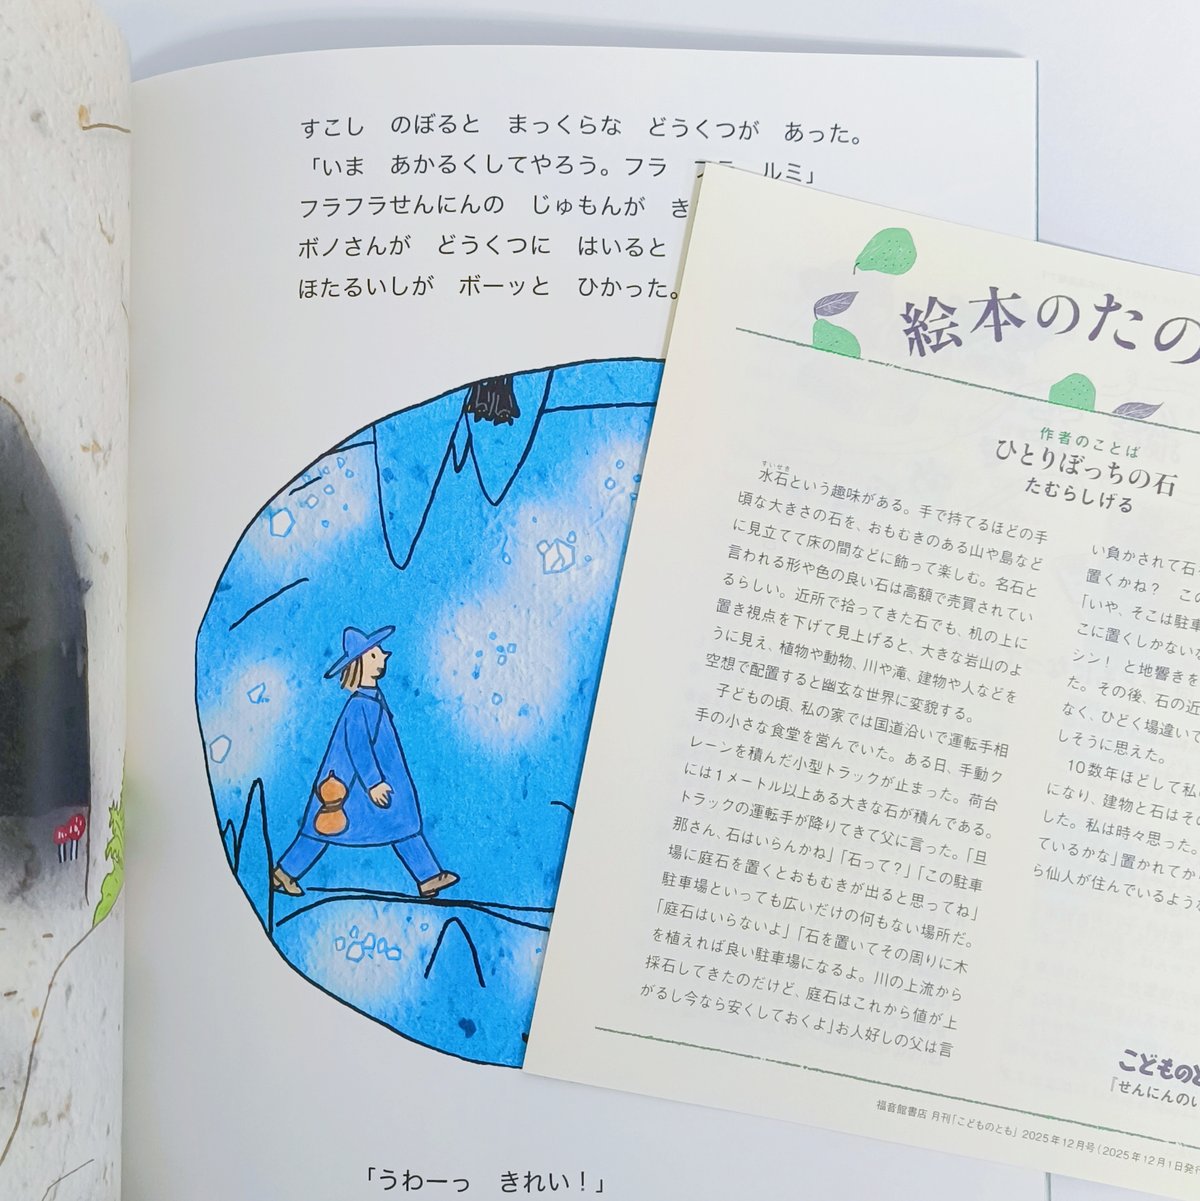 すこし　のぼると　まっくらな　どうくつが　あった。
「いま　あかるくしてやろう。フラ　フラ　ルミ」
フラフラせんにんの　じゅもんが　き
ボノさんが　どうくつに　はいると
ほたるいしが　ボーッと　ひかった。
「うわーっ　きれい！」
絵本のたの
作者のことば
ひとりぼっちの石
たむらしげる
すいせき
水石という趣味がある。手で持てるほどの手
頃な大きさの石を、おもむきのある山や島など
に見立てて床の間などに飾って楽しむ。名石と
言われる形や色の良い石は高額で売買されてい
るらしい。近所で拾ってきた石でも、机の上に
置き視点を下げて見上げると、大きな岩山のよ
うに見え、植物や動物、川や滝、建物や人などを
空想で配置すると幽玄な世界に変貌する。
子どもの頃、私の家では国道沿いで運転手相
手の小さな食堂を営んでいた。ある日、手動ク
レーンを積んだ小型トラックが止まった。荷台
には1メートル以上ある大きな石が積んである。
トラックの運転手が降りてきて父に言った。「旦
那さん、石はいらんかね」「石って？」「この駐車
場に庭石を置くとおもむきが出ると思ってね」
駐車場といっても広いだけの何もない場所だ。
「庭石はいらないよ」「石を置いてその周りに木
を植えれば良い駐車場になるよ。川の上流から
採石してきたのだけど、庭石はこれから値が上
がるし今なら安くしておくよ」お人好しの父は言
い負かされて石
置くかね？　この
「いや、そこは駐車
こに置くしかないな
シン！ と地響きを
た。その後、石の近
なく、ひどく場違いで
しそうに思えた。
10数年ほどして私の
になり、建物と石はその
した。私は時々思った。
ているかな」置かれてか
ら仙人が住んでいるような
こどものと
「せんにんのい
福音館書店 月刊「こどものとも」 2025年12月号（2025年12月1日発行